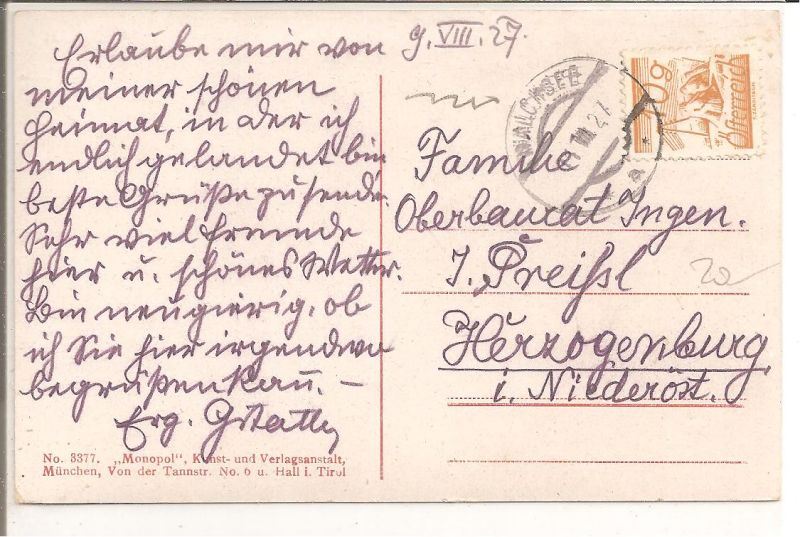 Erlaube mir von 9. VIII. 27.
meiner schönen
Heimat, in der ich
endlich gelandet bin
beste Grüße zu senden.
Sehr viel Fremde
hier u. schönes Wetter.
Bin neugierig, ob
ich Sie hier irgendwo
begrüßen kann. –
Erg.
No. 3377. „Monopol", Kunst- und Verlagsanstalt,
München, Von der Tannstr. No. 6 u. Hall i. Tirol
WALCHSEE
Österreich
Familie
Oberbaurat Ingen.
J. Preißl
Herzogenburg
i. Niederöst.